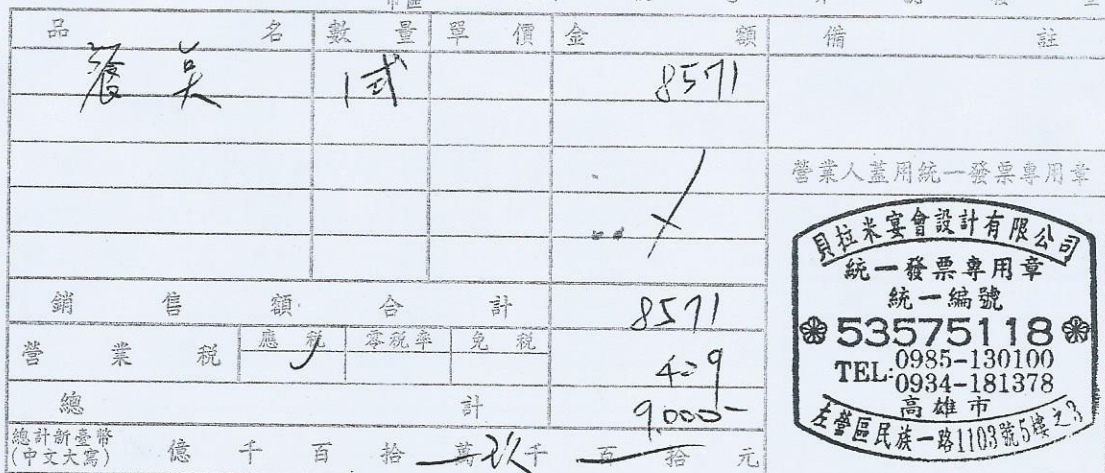 市區
品 名 數 量 單 價 金 額 備 註
餐 1式 8571
營業人蓋用統一發票專用章
銷 售 額 合 計 8571
營 業 稅 應 稅 零稅率 免 稅 429
總 計 9,000-
總計新臺幣
(中文大寫) 億 千 百 拾 萬 玖千 百 拾 元
貝拉米宴會設計有限公司
統一發票專用章
統一編號
53575118
TEL:0985-130100
0934-181378
高雄市
左營區民族一路1103號5樓之3